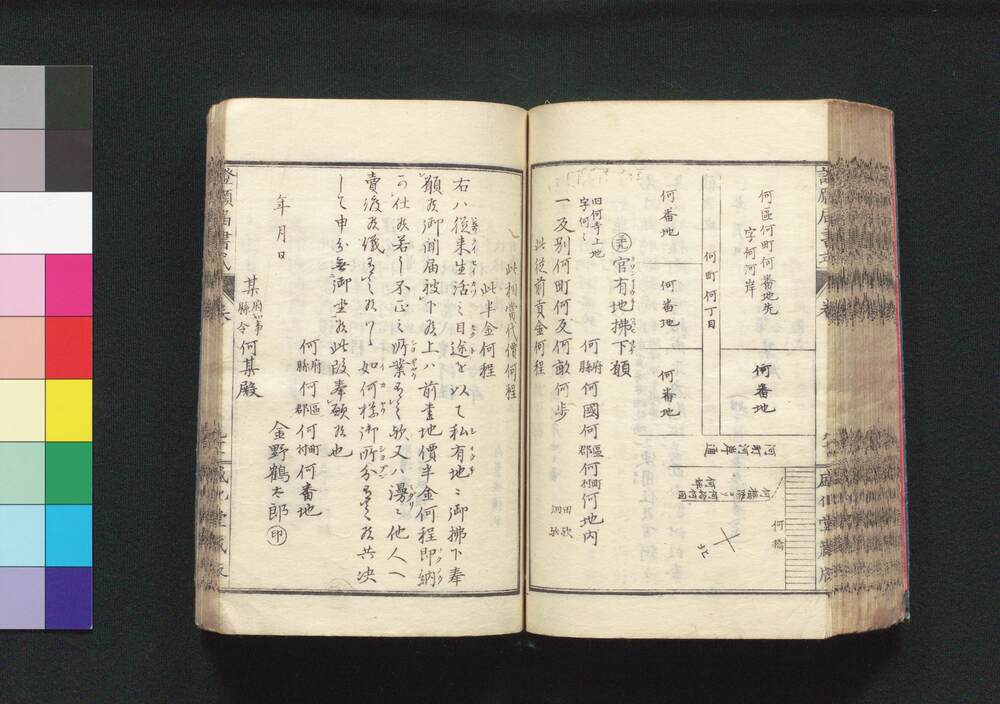 何區何町何番地先
字何河岸
何町何丁目
何番地
何番地
何番地
何番地
何町河岸通
何橋
北
官有地拂下願
旧何寺上地
字何々
何府縣何國何區郡何町村何地内
一反別何町何反何畝何歩
田歟
畑歟
此従前貢金何程
此相當代價何程
此半金何程
右ハ従来生活之目途を以て私有地ニ御拂下奉
願度御聞届被下度上ハ前書地價半金何程即納
可仕候若し不正之所業有之歟又ハ漫ニ他人へ
賣渡候儀有之候ハヾ如何様御所分有之候共决
して申分無御坐候此段奉願候也
年月日
何府縣何區郡何町村何番地
金野鶴太郎 印
某府知事縣令何某殿
證願届書式